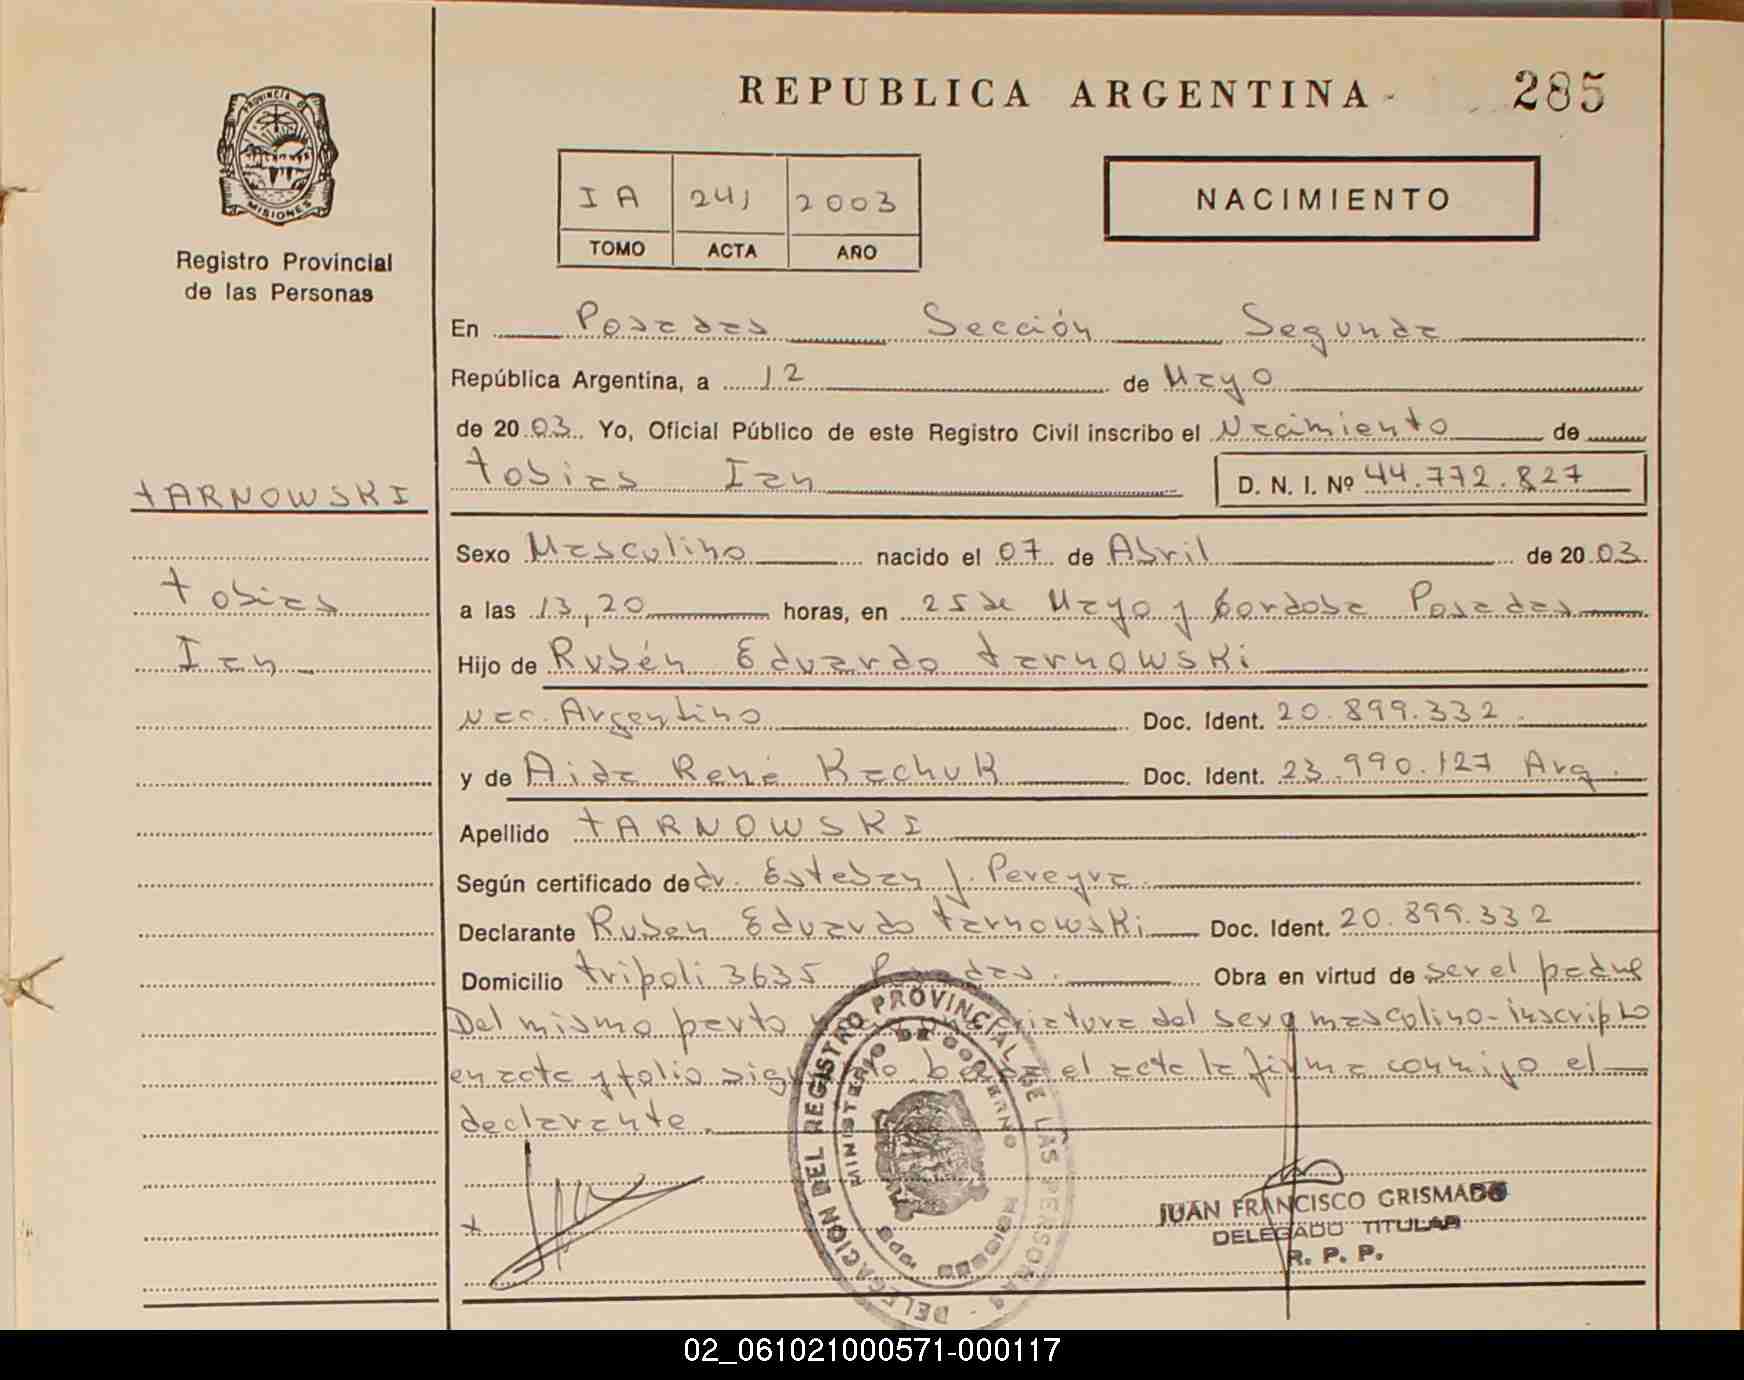 REPUBLICA ARGENTINA
285
PROVINCIA DE
MISIONES
Registro Provincial
de las Personas
IA 241 2003
TOMO ACTA AÑO
NACIMIENTO
En Posadas Sección Segunda
República Argentina, a 12 de Mayo
de 2003. Yo, Oficial Público de este Registro Civil inscribo el Nacimiento de
tobias Ian D. N. I. Nº 44.772.827
tARNOWSKI
tobias
Ian
Sexo Masculino nacido el 07 de Abril de 2003.
a las 13,20 horas, en 25 de Mayo y Cordoba Posadas
Hijo de Rubén Eduardo tarnowski
nac. Argentino Doc. Ident. 20.899.332
y de Aida René Kachuk Doc. Ident. 23.990.127 Arg.
Apellido tARNOWSKI
Según certificado de dr. Esteban J. Pereyra
Declarante Ruben Eduardo tarnowski Doc. Ident. 20.899.332
Domicilio tripoli 3635 Posadas. Obra en virtud de ser el padre
Del mismo parto criatura del sexo masculino - inscripto
en acta y folio el acta la firma conmigo el
declarante.
DELEGACION DEL REGISTRO PROVINCIAL DE LAS PERSONAS
MINISTERIO DE GOBIERNO
JUAN FRANCISCO GRISMADO
DELEGADO TITULAR
R. P. P.
02_061021000571-000117